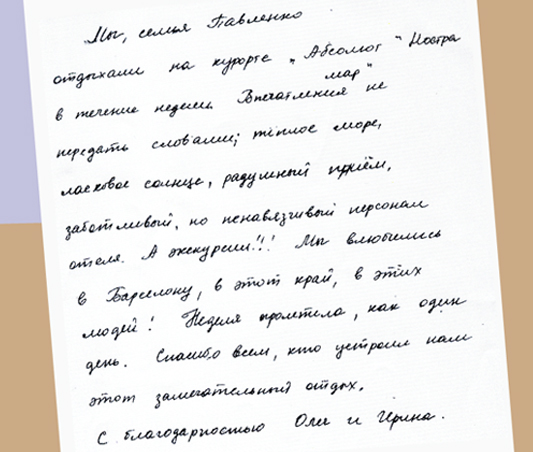 Мы, семья Павленко
отдыхали на курорте „Абсолют" Ностра
мар"
в течение недели. Впечатления не
передать словами; тёплое море,
ласковое солнце, радушный приём,
заботливый, но ненавязчивый персонал
отеля. А экскурсии!!! Мы влюбились
в Барселону, в этот край, в этих
людей! Неделя пролетела, как один
день. Спасибо всем, кто устроил нам
этот замечательный отдых.
С благодарностью Олег и Ирина.